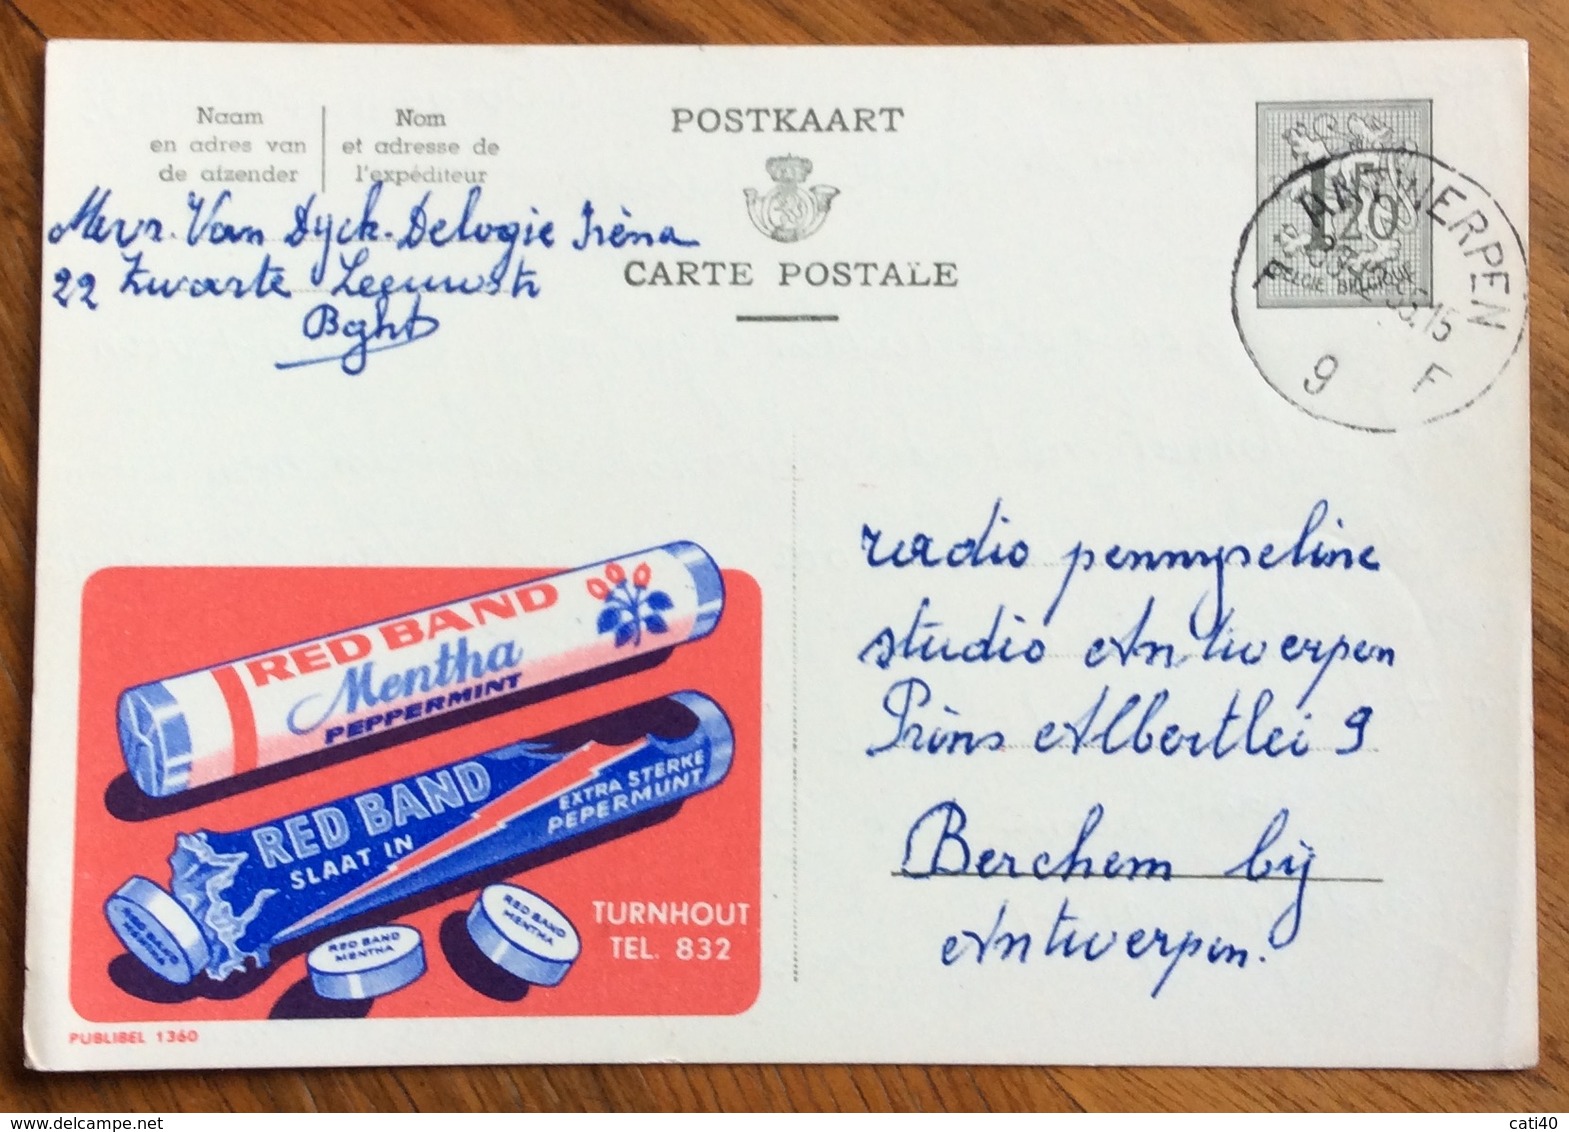 Naam
en adres van
de afzender
Nom
et adresse de
l'expéditeur
POSTKAART
CARTE POSTALE
1F20
BELGIE BELGIQUE
ANTWERPEN
15
9 F
Mevr. Van Dyck-Delogie Irèna
22 Zwarte Leeuwstr
Bght
RED BAND
Mentha
PEPPERMINT
RED BAND
SLAAT IN
EXTRA STERKE
PEPERMUNT
RED BAND
MENTHA
RED BAND
MENTHA
RED BAND
MENTHA
TURNHOUT
TEL. 832
PUBLIBEL 1360
radio pennyseline
studio Antwerpen
Prins Albertlei 9
Berchem bij
Antwerpen.
cati40